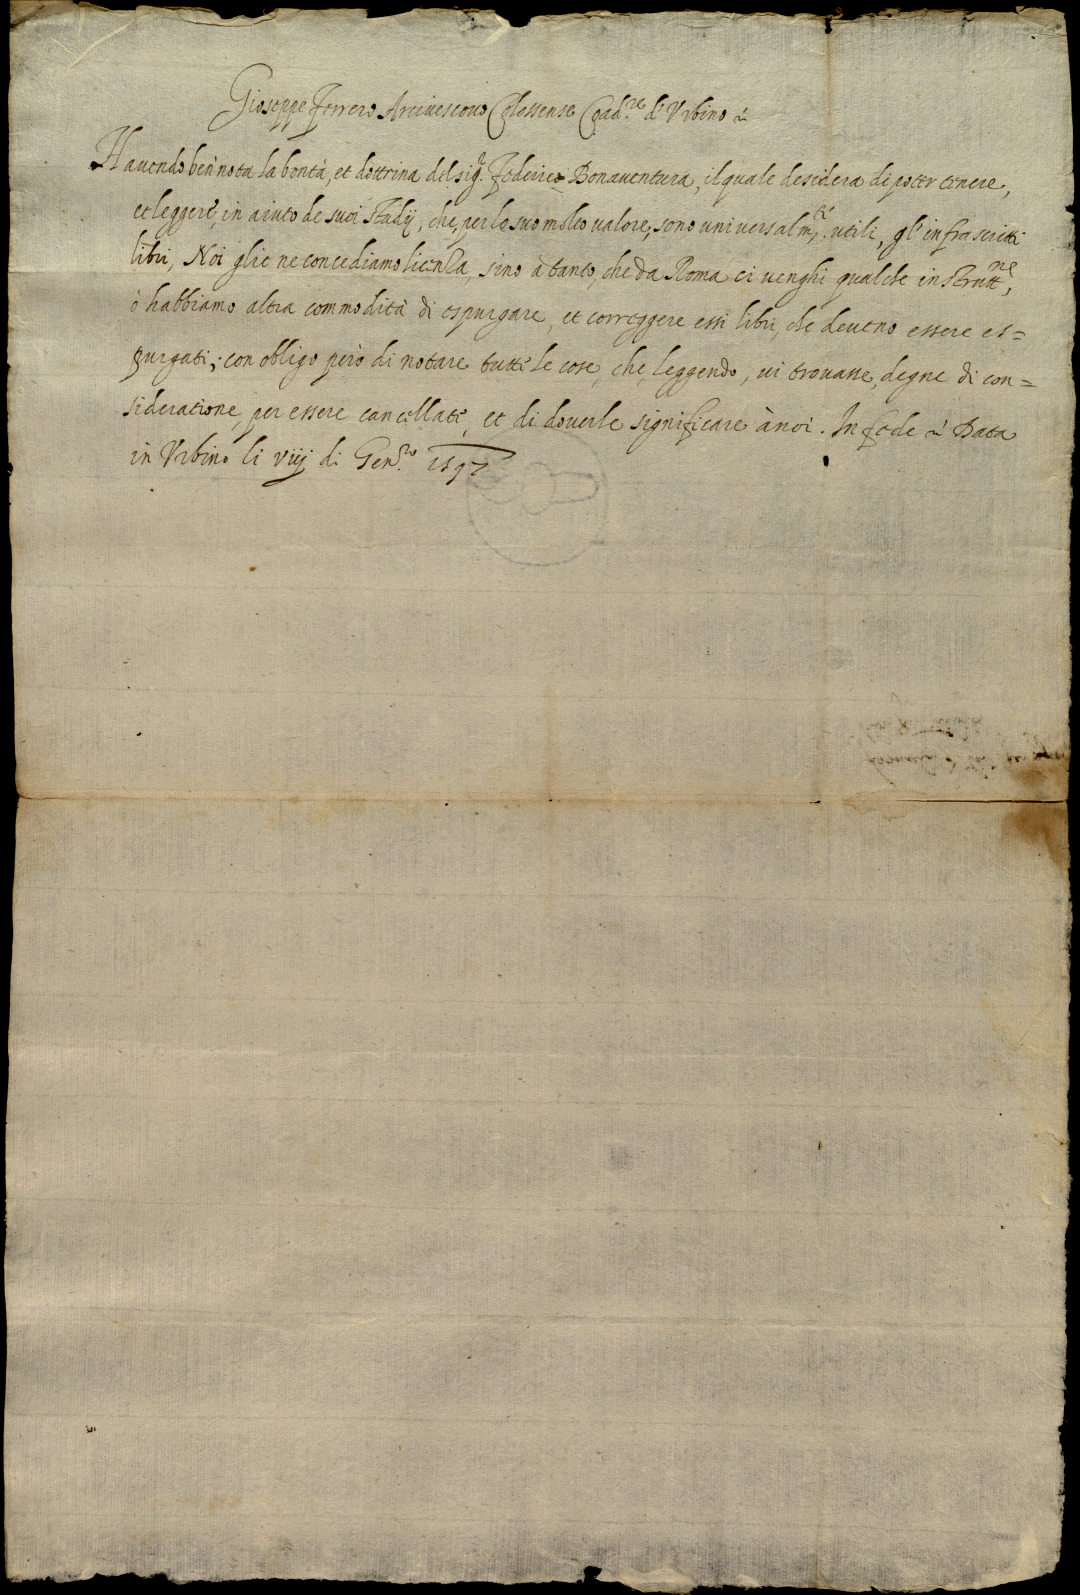 Gioseppe Ferrero Arciuescouo Colossense Coad.re di Vrbino
Hauendo ben nota la bontà, et dottrina del sig.r Federico Bonauentura, il quale desidera di poter tenere,
et leggere, in aiuto de suoi studij, che, per lo suo molto valore, sono uniuersalm.te utili, gl'infrascritti
libri, Noi glie ne concediamo licenza, sino à tanto, che da Roma ci uenghi qualche instrutt.ne,
ò habbiamo altra commodità di espurgare, et correggere essi libri, che deueno essere es=
purgati; con obligo però di notare tutte le cose, che, leggendo, ui trouasse, degne di con=
sideratione, per essere cancellate, et di douerle significare à noi. In fede Data
in Vrbino li viij di Gen.ro 1597